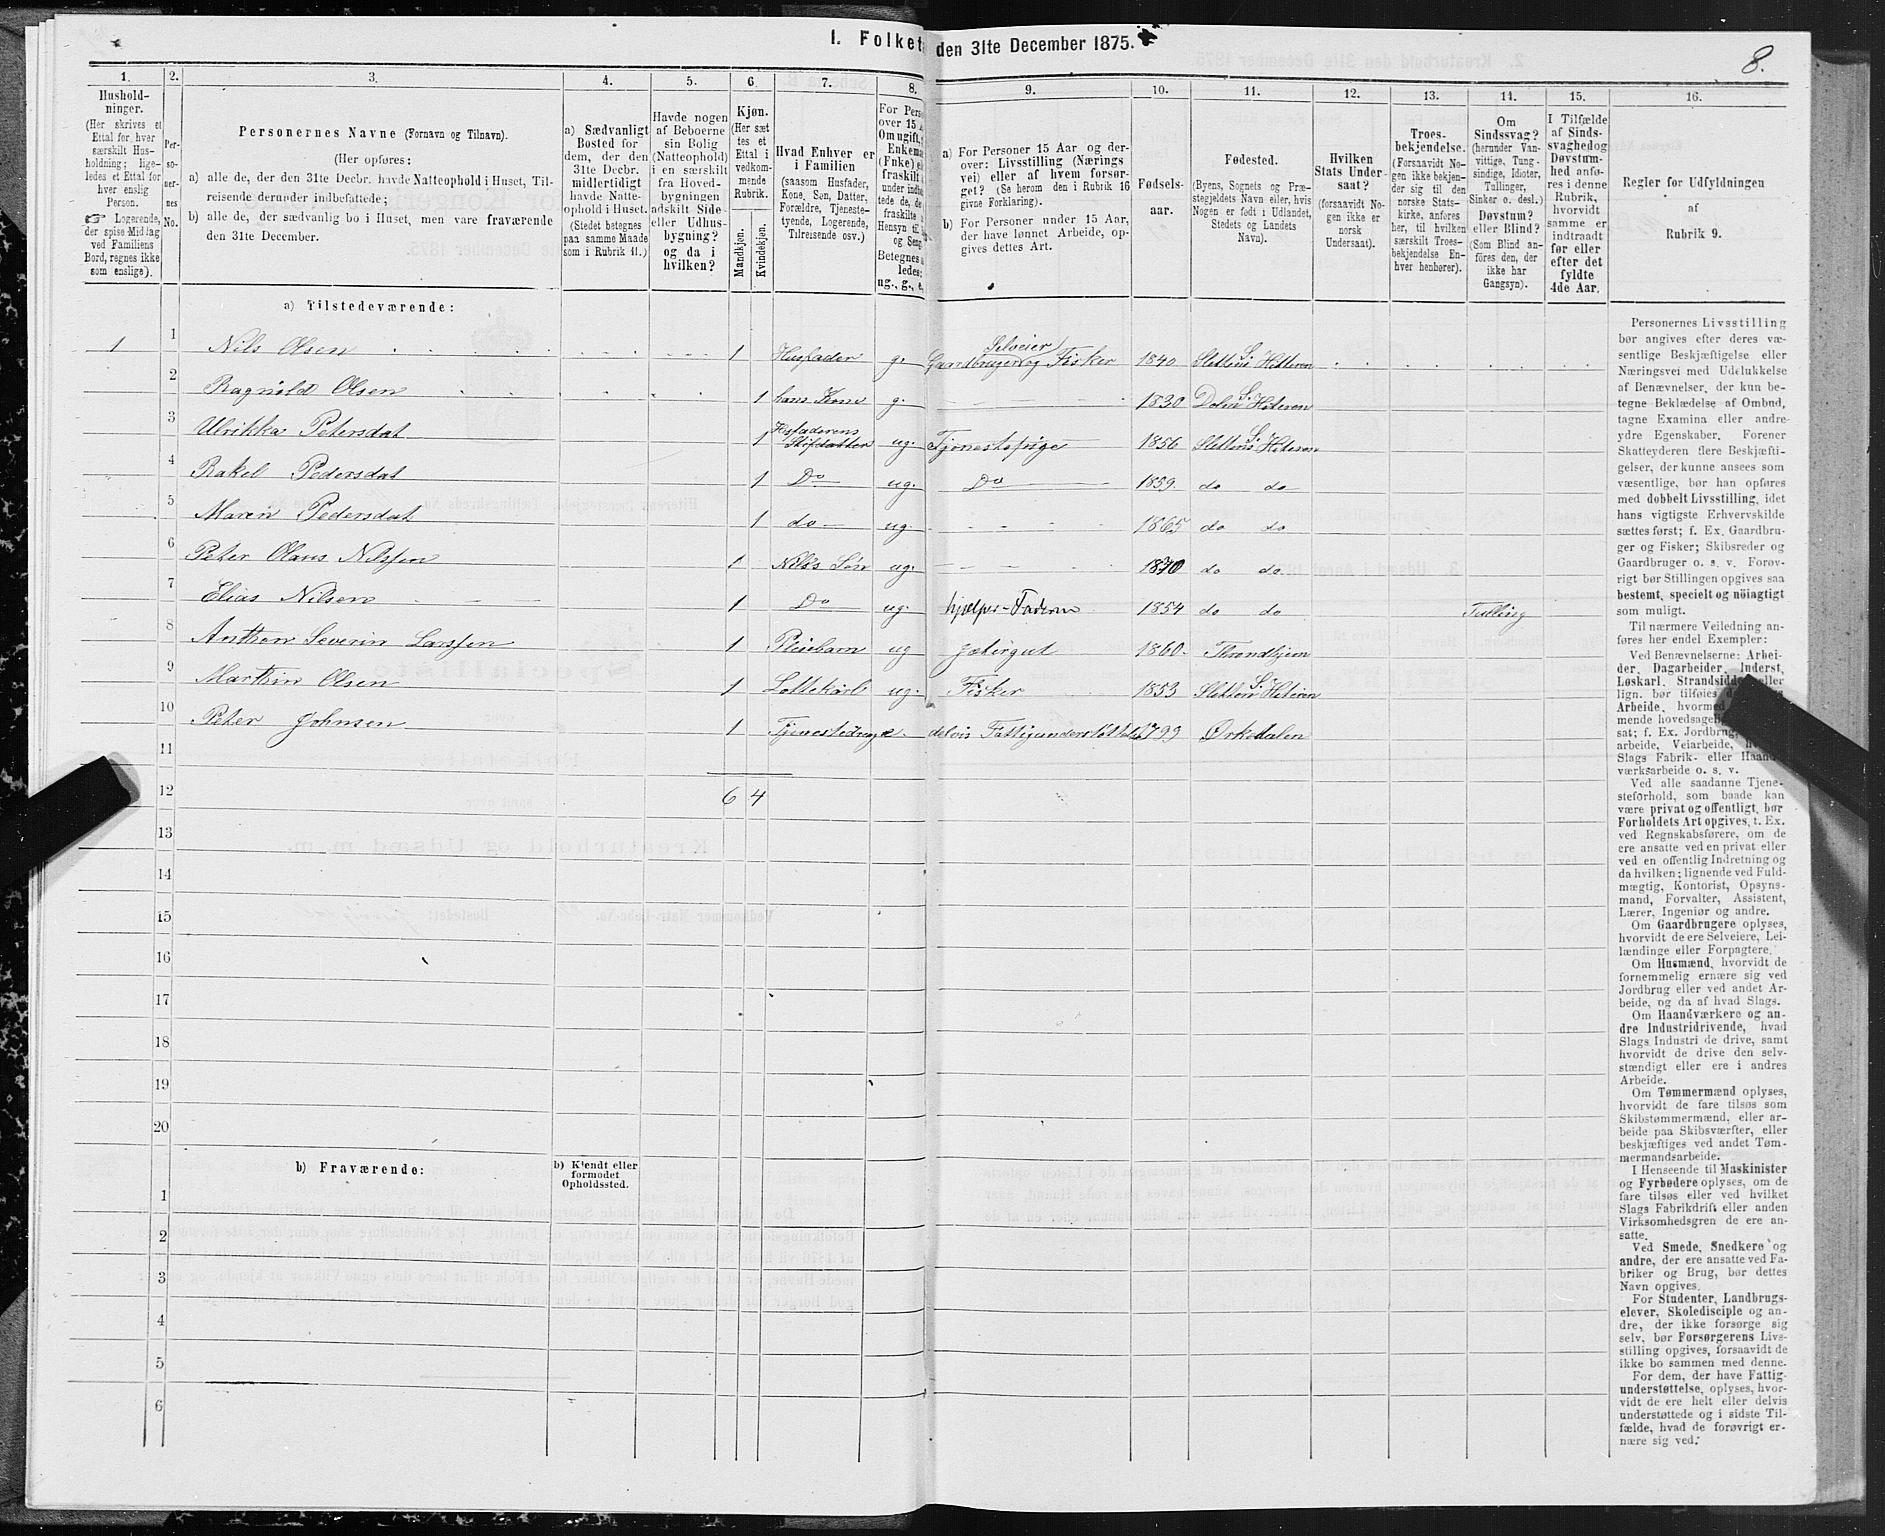 1. Folket den 31te December 1875.
8.
1. 2. 3. 4. 5. 6. 7. 8. 9. 10. 11. 12. 13. 14. 15. 16.
Hushold-
ninger.
(Her skrives et
Ettal for hver
særskilt Hus-
holdning; lige-
ledes et Ettal for
hver enslig
Person.
☞ Logerende,
der spise Middag
ved Familiens
Bord, regnes ikke
som enslige).
Per-
so-
ner-
nes
No.
Personernes Navne (Fornavn og Tilnavn).
(Her opføres:
a) alle de, der den 31te Decbr. havde Natteophold i Huset, Til-
reisende derunder indbefattede;
b) alle de, der sædvanlig bo i Huset, men vare fraværende
den 31te December.
a) Sædvanligt
Bosted for
dem, der den
31te Decbr.
midlertidigt
havde Natte-
ophold i Huset.
(Stedet betegnes
paa samme Maade
som i Rubrik 11.)
Havde nogen
af Beboerne
sin Bolig
(Natteophold)
i en særskilt
fra Hoved-
bygningen
adskilt Side-
eller Udhus-
bygning?
og da i
hvilken?
Kjøn.
(Her sæt
tes et
Ettal i
vedkom-
mende
Rubrik.
Mandkjøn.
Kvindekjøn.
Hvad Enhver er
i Familien
(saasom Husfader,
Kone, Søn, Datter,
Forældre, Tjeneste-
tyende, Logerende,
Tilreisende osv.)
For Pers
over 15 A
Om ugift,
Enkema
(Enke) e
fraskilt
under indbe
tede de, de
fraskilte
Hensyn til
og Seng
Betegnes s
ledes:
ug., g., e,
a) For Personer 15 Aar og der-
over: Livsstilling (Nærings
vei) eller af hvem forsør-
get? (Se herom den i Rubrik 16
givne Forklaring).
b) For Personer under 15 Aar,
der have lønnet Arbeide, op-
gives dettes Art.
Fødsels-
aar.
Fødested.
(Byens, Sognets og Præ-
stegjeldets Navn eller, hvis
Nogen er født i Udlandet,
Stedets og Landets
Navn).
Hvilken
Stats Under-
saat?
(forsaavidt No-
gen ikke er
norsk
Undersaat).
Troes-
bekjendelse.
(Forsaavidt No-
gen ikke bekjen-
der sig til den
norske Stats-
kirke, anføres
her, til hvilken
særskilt Troes-
bekjendelse En-
hver henhører).
Om
Sindssvag?
(herunder Van-
vittige, Tung-
sindige, Idioter,
Tullinger,
Sinker o. desl.)
Døvstum?
eller Blind?
(Som Blind an-
føres den, der
ikke har
Gangsyn).
I Tilfælde
af Sinds-
svaghed og
Døvstum-
hed anfø-
res i denne
Rubrik,
hvorvidt
samme er
indtraadt
før eller
efter det
fyldte
4de Aar.
Regler for Udfyldningen
af
Rubrik 9.
a) Tilstedeværende:
1 1 Nils Olsen 1 Husfader g. Gaardbruger og Fisker 1840 Sletten S. Hitteren
Selveier
2 Ragnild Olsen 1 hans Kone g. 1830 Dolm S. Hiteren
3 Ulrikka Petersdat 1 Husfaderens Stifdatter ug. Tjenestepige 1856 Sletten S. Hiteren
4 Rakel Pedersdat 1 Do ug. Do 1859. do do
5 Maren Pedersdat 1 do ug. 1865 do do
6 Peter Olaus Nilssen 1 Nils's Søn ug. 1870 do do.
7 Elias Nilsen 1 Do ug. hjælper Faderen 1854 do do Tulling
8 Anthon Severin Larssen 1 Pleiebarn ug Gjætergut 1860. Throndhjem
9 Marthin Olsen 1 ug. Fisker 1853 Sletten S. Hiteren
10 Peter Johnsen 1 Tjenestedreng e. delvis Fattigunderstøttet 1799 Ørkedalen
11
12 6 4
13
14
15
16
17
18
19
20
b) Fraværende:
b) Kjendt eller
formodet
Opholdssted.
1
2
3
4
5
6
Personernes Livsstilling
bør angives efter deres væ-
sentlige Beskjæftigelse eller
Næringsvei med Udelukkelse
af Benævnelser, der kun be-
tegne Beklædelse af Ombud,
tagne Examina eller andre
ydre Egenskaber. Forener
Skatteyderen flere Beskjæfti-
gelser, der kunne ansees som
væsentlige, bør han opføres
med dobbelt Livsstilling, idet
hans vigtigste Erhvervskilde
sættes først; f. Ex. Gaardbru-
ger og Fisker; Skibsreder og
Gaardbruger o. s. v. Forøv-
rigt bør Stillingen opgives saa
bestemt, specielt og nøiagtigt
som muligt.
Til nærmere Veiledning an-
føres her endel Exempler:
Ved Benævnelserne: Arbei-
der, Dagarbeider, Inderst,
Løskarl, Strandsidder eller
lign. bør tilføies
Arbeide, hvormed
mende hovedsagelig
sat; f. Ex. Jordbrug,
arbeide, Veiarbeide,
Slags Fabrik- eller Haand-
værksarbeide o. s. v.
Ved alle saadanne Tjene-
steforhold, som baade kan
være privat og offentligt, bør
Forholdets Art opgives, t. Ex.
ved Regnskabsførere, om de
ere ansatte ved en privat eller
ved en offentlig Indretning og
da hvilken; lignende ved Fuld-
mægtig, Kontorist, Opsyns-
mand, Forvalter, Assistent,
Lærer, Ingeniør og andre.
Om Gaardbrugere oplyses,
hvorvidt de ere Selveiere, Lei-
lændinge eller Forpagtere.
Om Husmænd, hvorvidt de
fornemmelig ernære sig ved
Jordbrug eller ved andet Ar-
beide, og da af hvad Slags.
Om Haandværkere og an-
dre Industridrivende, hvad
Slags Industri de drive, samt
hvorvidt de drive den selv-
stændigt eller ere i andres
Arbeide.
Om Tømmermænd oplyses,
hvorvidt de fare tilsøs som
Skibstømmermænd, eller ar-
beide paa Skibsværfter, eller
beskjæftiges ved andet Tøm-
mermandsarbeide.
I Henseende til Maskinister
og Fyrbødere oplyses, om de
fare tilsøs eller ved hvilket
Slags Fabrikdrift eller anden
Virksomhedsgren de ere an-
satte.
Ved Smede, Snedkere og
andre, der ere ansatte ved Fa-
briker og Brug, bør dettes
Navn opgives.
For Studenter, Landbrugs-
elever, Skoledisciple og an-
dre, der ikke forsørge sig
selv, bør Forsørgerens Livs-
stilling opgives, forsaavidt de
ikke bo sammen med denne.
For dem, der have Fattig-
understøttelse, oplyses, hvor-
vidt de ere helt eller delvis
understøttede og i sidste Til-
fælde, hvad de forøvrigt er-
nære sig ved.